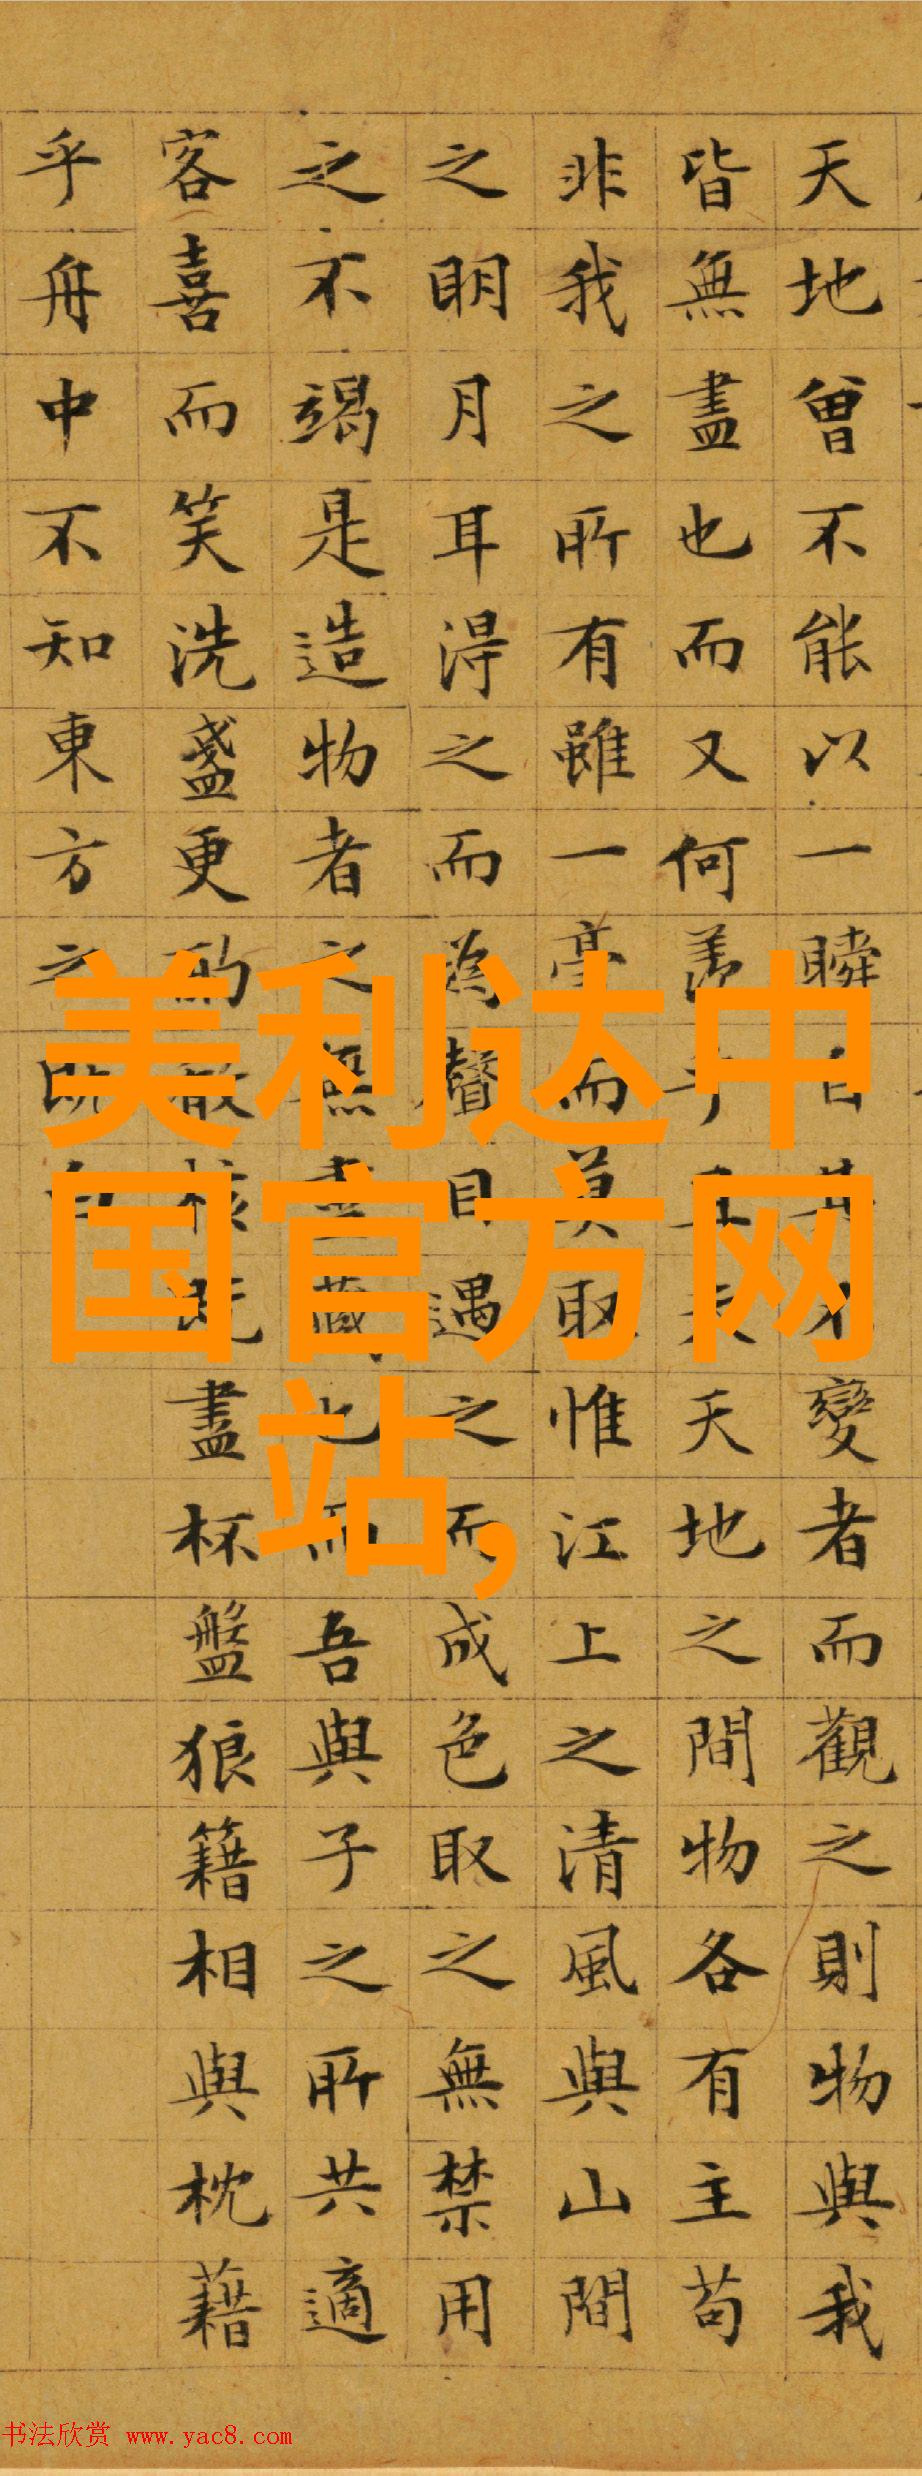 天地曾不能以一瞬自其不變者而觀之則物與我
皆無盡也而又何羨乎且夫天地之間物各有主苟
非我之所有雖一毫而莫取惟江上之清風與山間
之明月耳得之而為聲目遇之而成色取之無禁用
之不竭是造物者之無盡藏也而吾與子之所共適
客喜而笑洗盞更酌殽核既盡杯盤狼籍相與枕藉
乎舟中不知東方之既白
美利达中
国官方网
站,
书法欣赏 www.yac8.com